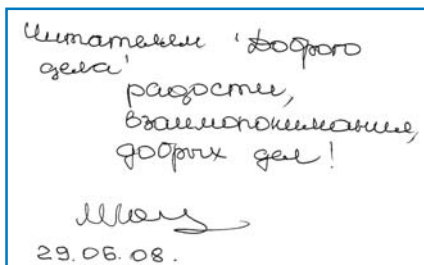 Читателям 'Доброго
дела'
радости,
взаимопонимания,
добрых дел!
29.06.08.